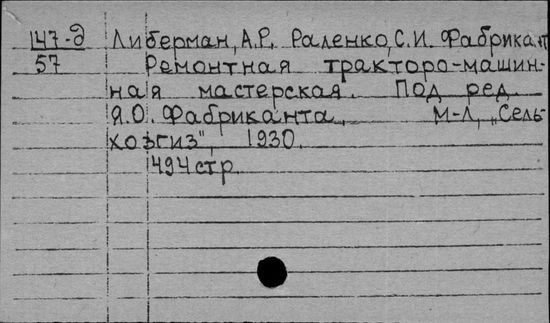 147-д Либерман, А.Р. Раленко, С.И. Фабрикант
57 Ремонтная тракторо-машин-
ная мастерская. Под ред.
Я.О. Фабриканта, М-Л, „Сель-
хозгиз", 1930.
494 стр.